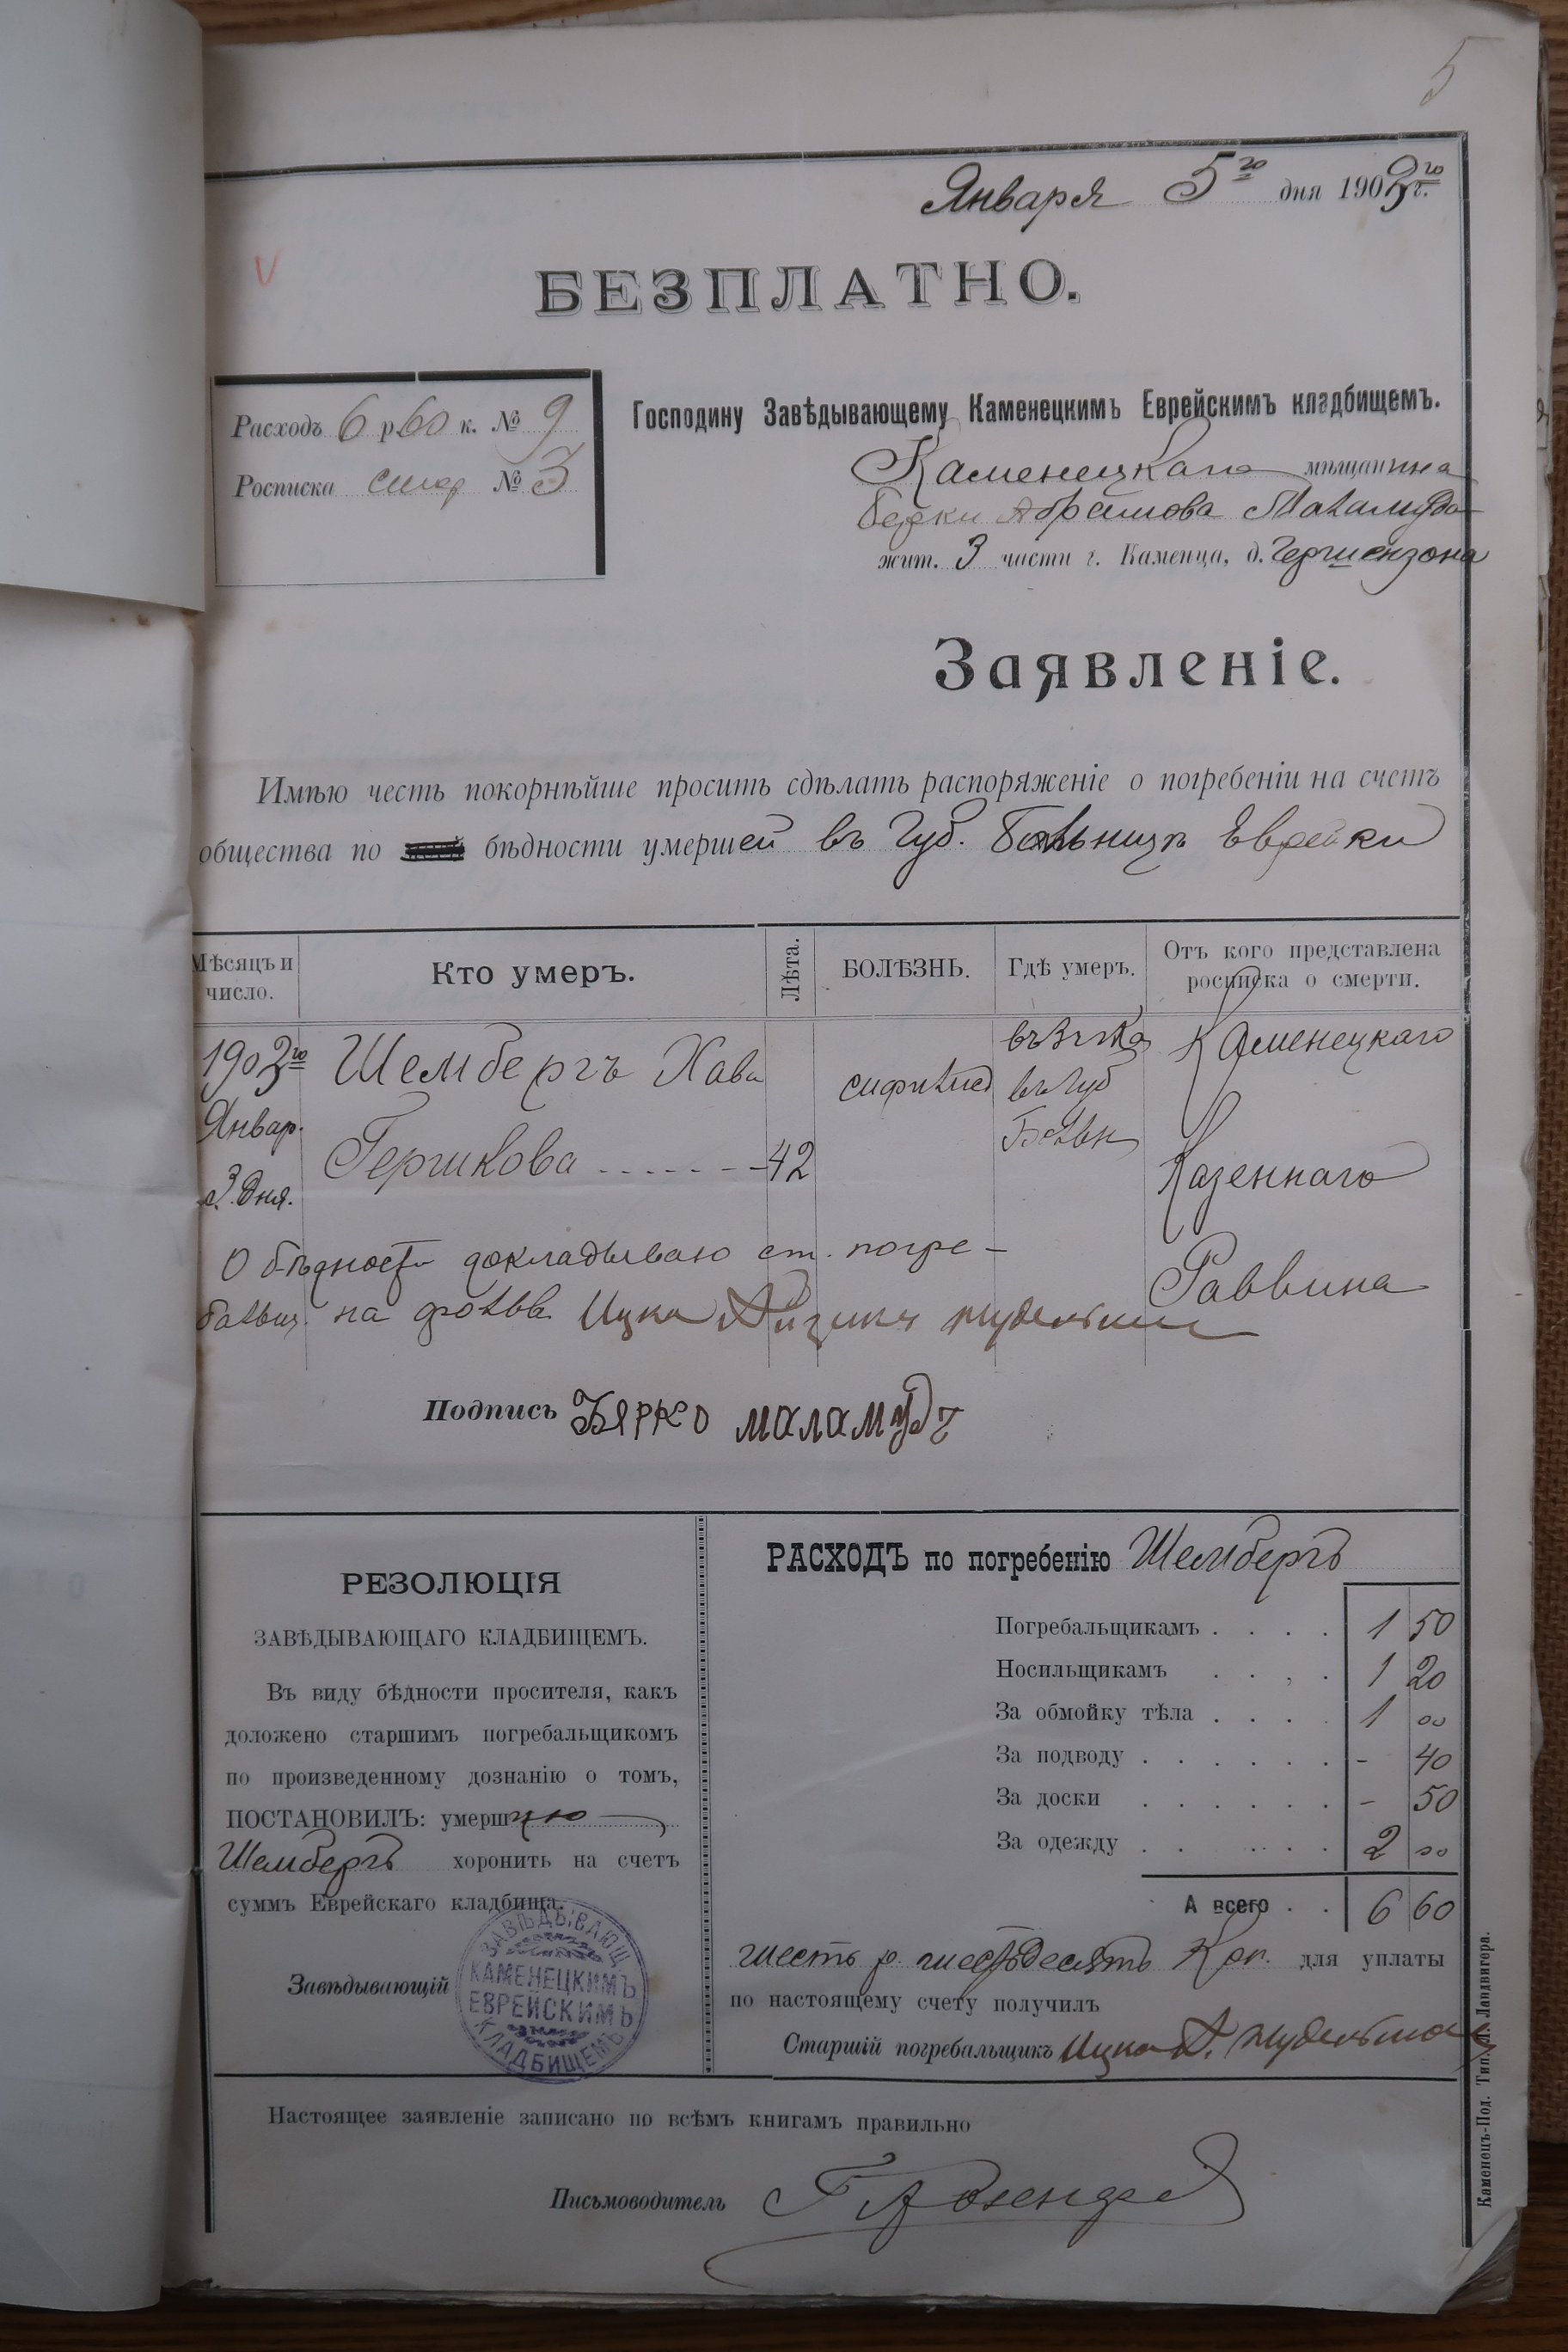 5
Января 5го дня 1903го г.
БЕЗПЛАТНО.
Расходъ 6 р 60 к. № 9
Росписка № 3
Господину Завѣдывающему Каменецкимъ Еврейскимъ кладбищемъ.
Каменецкаго мѣщанина
Берки Абрамова Маламуда
жит. 3 части г. Каменца, д. Гершензона
Заявленіе.
Имѣю честь покорнѣйше просить сдѣлать распоряженіе о погребеніи на счетъ
общества по бѣдности умершей въ Губ. Больницѣ Еврейки
Мѣсяцъ и число. Кто умеръ. Лѣта. БОЛѢЗНЬ. Гдѣ умеръ. Отъ кого представлена росписка о смерти.
1903го Шембергъ Хава сифилис Каменецкаго
Январ. въ Губ
3 дня. Гершкова 42 Больн Казеннаго
О бѣдности докладываю ст. погре-
Раввина
бальщ. Ицко
Подпись Бярко маламудъ
РЕЗОЛЮЦІЯ
ЗАВѢДЫВАЮЩАГО КЛАДБИЩЕМЪ.
Въ виду бѣдности просителя, какъ
доложено старшимъ погребальщикомъ
по произведенному дознанію о томъ,
ПОСТАНОВИЛЪ: умершую
Шембергъ хоронить на счетъ
суммъ Еврейскаго кладбища.
Завѣдывающій
ЗАВѢДЫВАЮЩ
КАМЕНЕЦКИМЪ
ЕВРЕЙСКИМЪ
КЛАДБИЩЕМЪ
РАСХОДЪ по погребенію Шембергъ
Погребальщикамъ . . . . 1 50
Носильщикамъ . . . . 1 20
За обмойку тѣла . . . . 1 00
За подводу . . . . . . - 40
За доски . . . . . . - 50
За одежду . . . . . 2 00
А всего . . 6 60
шесть р. шестьдесятъ Коп. для уплаты
по настоящему счету получилъ
Старшій погребальщикъ Ицко А.
Настоящее заявленіе записано по всѣмъ книгамъ правильно
Письмоводитель
Каменецъ-Под. Тип. Л. Ландвигера.